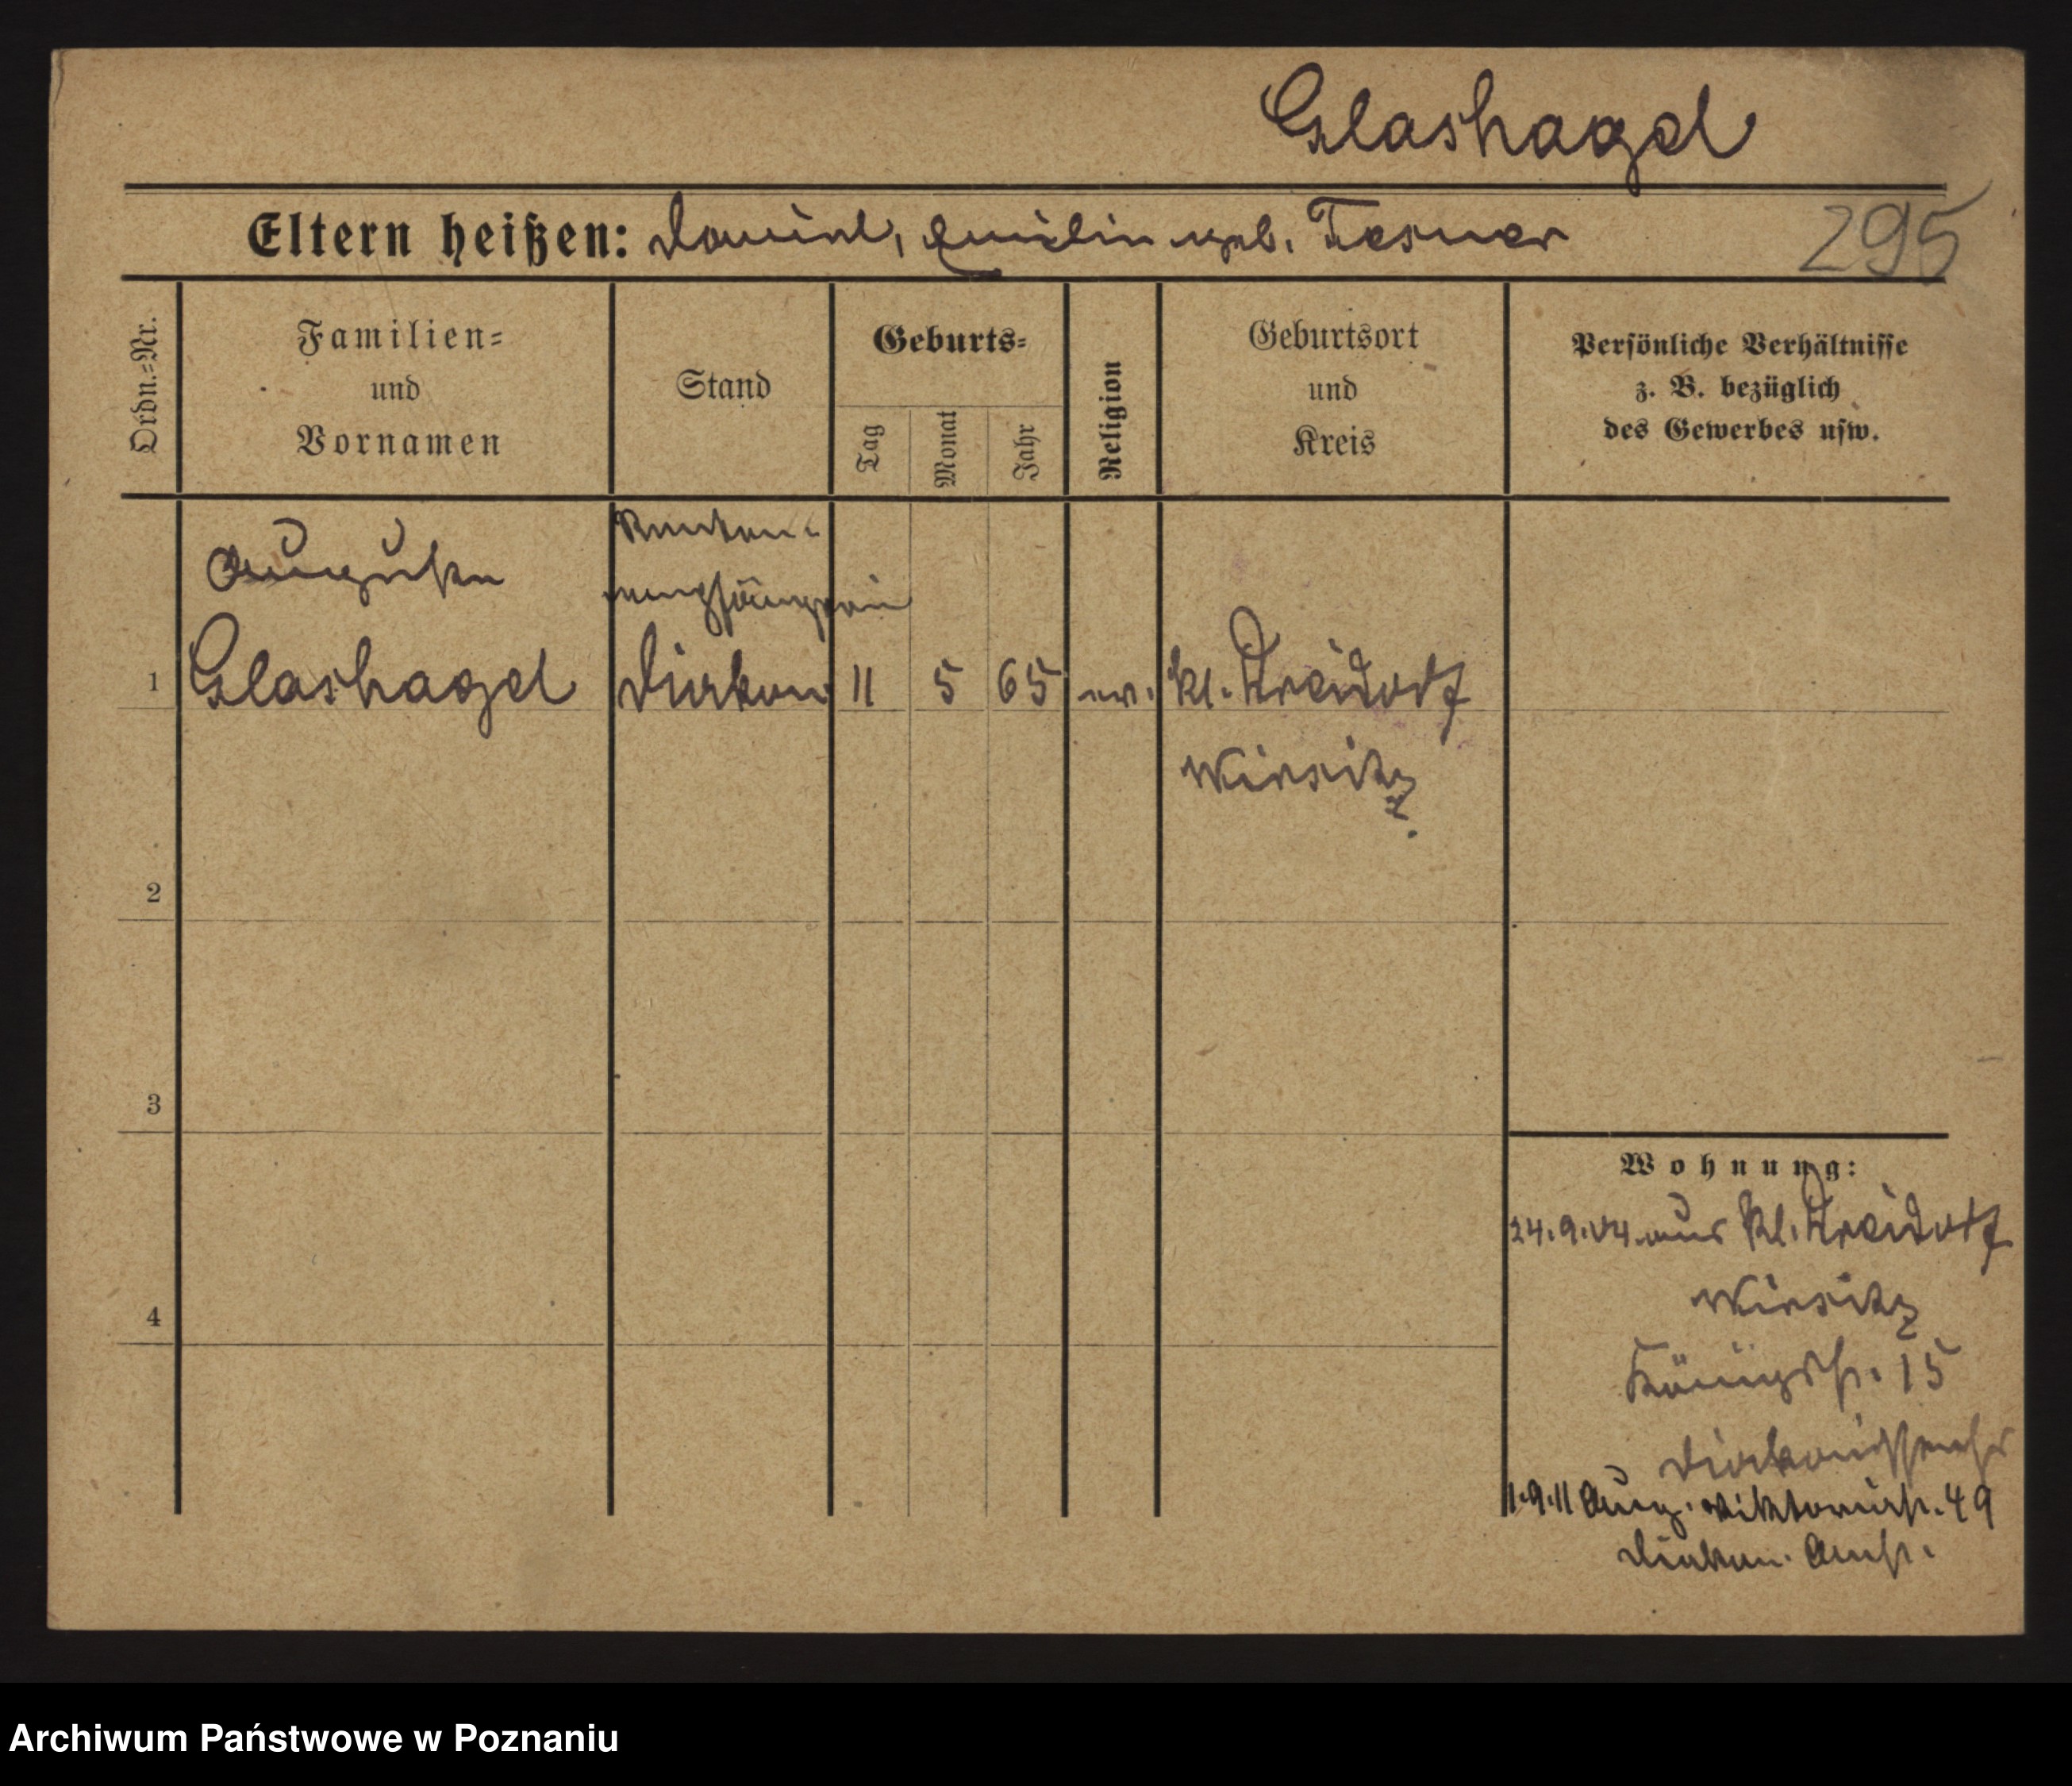 Glashagel
Eltern heißen: Daniel, Emilie geb. Tesmer
295
Ordn.-Nr.
Familien-
und
Vornamen
Stand
Geburts-
Tag
Monat
Jahr
Religion
Geburtsort
und
Kreis
Persönliche Verhältnisse
z. B. bezüglich
des Gewerbes usw.
Auguste
Glashagel
Renten-
empfängerin
Diakon
1
11
5
65
ev.
Kl. Dreidorf
Wirsitz
2
3
4
Wohnung:
24.9.04 aus Kl. Dreidorf
Wirsitz
Königstr. 15
1.9.11 Aug. Viktoriastr. 49
Diakon. Anst.
Archiwum Państwowe w Poznaniu